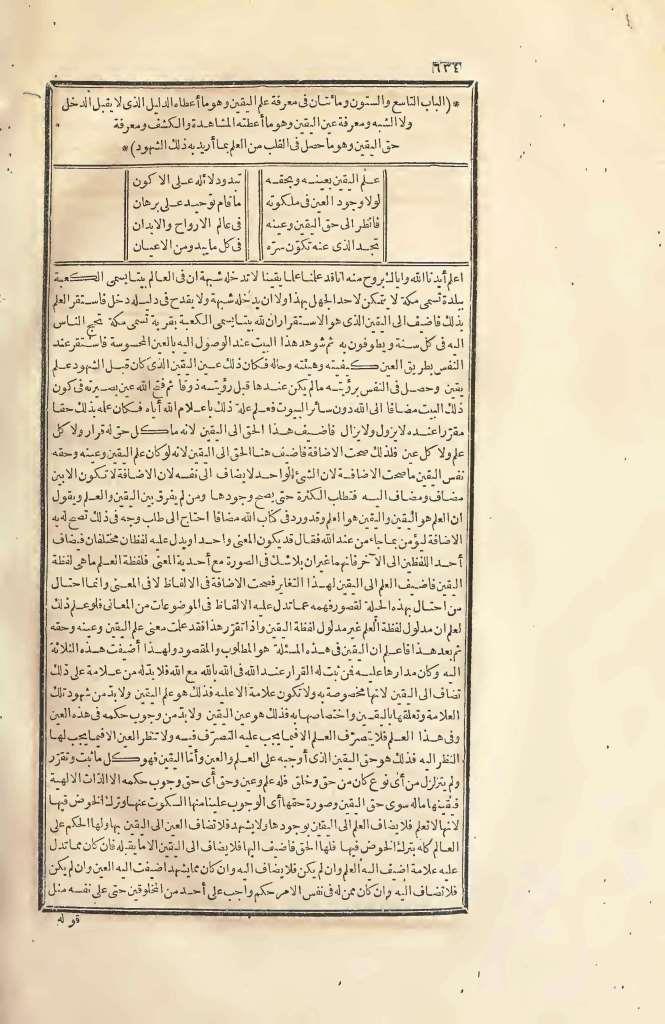 ٦٣٤
* (الباب التاسع والستون ومائتان فى معرفة علم اليقين وهو ما أعطاه الدليل الذى لا يقبل الدخل
ولا الشبه ومعرفة عين اليقين وهو ما أعطته المشاهدة والكشف ومعرفة *
حق اليقين وهو ما حصل فى القلب من العلم بما أريد به ذلك الشهود) *
علم اليقين بعينه وبحقه تبدو دلائله على الاكوان
لولا وجود العين فى ملكوته ما قام توحيد على برهان
فانظر الى حق اليقين وعينه فى عالم الارواح والابدان
تجد الذى عنه تكوّن سرّه فى كل ما يبدو من الاعيان
اعلم أيدنا الله واياك بروح منه انا قد علمنا علما يقينا لا تدخله شبهة ان فى العالم بيتا يسمى الكعبة
ببلدة تسمى مكة لا يتمكن لاحد الجهل بهذا ولا ان يدخله شبهة ولا يقدح فى دليله دخل فاستقر العلم
بذلك فأضيف الى اليقين الذى هو الاستقرار ان لله بيتا يسمى الكعبة بقرية تسمى مكة تحج الناس
اليه فى كل سنة ويطوفون به ثم شوهد هذا البيت عند الوصول اليه بالعين المحسوسة فاستقر عند
النفس بطريق العين كيفيته وهيئته وحاله فكان ذلك عين اليقين الذى كان قبل الشهود علم
يقين وحصل فى النفس برؤيته ما لم يكن عندها قبل رؤيته ذوقا ثم فتح الله عين بصيرته فى كون
ذلك البيت مضافا الى الله دون سائر البيوت فعلم علة ذلك باعلام الله اياه فكان علمه بذلك حقا
مقررا عنده لا يزول ولا يزال فاضيف هذا الحق الى اليقين لانه ما كل حق له قرار ولا كل
علم ولا كل عين فلذلك صحت الاضافة فاضيف هنا الحق الى اليقين لانه لو كان علم اليقين وعينه وحقه
نفس اليقين ما صحت الاضافة لان الشئ الواحد لا يضاف الى نفسه لان الاضافة لا تكون الا بين
مضاف ومضاف اليه فتطلب الكثرة حتى يصح وجودها ومن لم يفرق بين اليقين والعلم ويقول
ان العلم هو اليقين واليقين هو العلم وقد ورد فى كتاب الله مضافا احتاج الى طلب وجه فى ذلك تصح له به
الاضافة ليؤمن بما جاء من عند الله فقال قد يكون المعنى واحدا ويدل عليه لفظان مختلفان فيضاف
أحد اللفظين الى الآخر فانهما غيران بلا شك فى الصورة مع أحدية المعنى فلفظة العلم ما هى لفظة
اليقين فاضيف العلم الى اليقين لهذا التغاير فصحت الاضافة فى الالفاظ لا فى المعنى وانما احتال
من احتال بهذه الحيلة لقصور فهمه عما تدل عليه الالفاظ فى الموضوعات من المعانى فلو علم ذلك
لعلم ان مدلول لفظة العلم غير مدلول لفظة اليقين واذا تقرّر هذا فقد علمت معنى علم اليقين وعينه وحقه
ثم بعد هذا فاعلم ان اليقين فى هذه المسئلة هو المطلوب والمقصود ولهذا أضيفت هذه الثلاثة
اليه وكان مدارها عليه فمن ثبت له القرار عند الله فى الله بالله مع الله فلا بد له من علامة على ذلك
تضاف الى اليقين لانها مخصوصة به ولا تكون علامة الا عليه فذلك هو علم اليقين ولا بدّ من شهود تلك
العلامة وتعلقها باليقين واختصاصها به فذلك هو عين اليقين ولا بدّ من وجوب حكمه فى هذه العين
وفى هذا العلم فلا يتصرّف العلم الا فيما يجب عليه التصرّف فيه ولا تنظر العين الا فيما يجب لها
النظر اليه فذلك هو حق اليقين الذى أوجبه على العلم والعين وأمّا اليقين فهو كل ما ثبت وتقرّر
ولم يتزلزل من أى نوع كان من حق وخلق فله علم وعين وحق أى حق وجوب حكمه الا الذات الالهية
فيقينها ماله سوى حق اليقين وصورة حقها أى الوجوب علينا منها السكوت عنها وترك الخوض فيها
لانها لا تعلم فلا يضاف العلم الى اليقين بوجودها ولا يشهد فلا تضاف العين الى اليقين بها ولها الحكم على
العالم كله بترك الخوض فيها فلها الحق فاضيف اليها فلا يضاف الى اليقين الا ما يقبله فان كان مما تدل
عليه علامة اضيف اليه العلم وان لم يكن فلا يضاف اليه وان كان مما يشهد اضيفت اليه العين وان لم يكن
فلا تضاف اليه وان كان ممن له فى نفس الامر حكم واجب على أحد من المخلوقين حتى على نفسه مثل
قوله